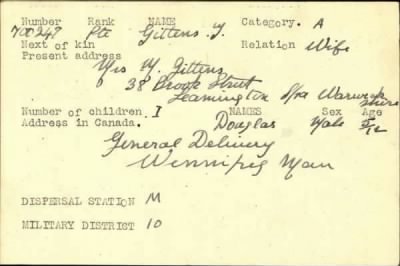 Number Rank NAME Category. A
700247 Pte Gittens. J.
Next of kin Relation Wife
Present address
Mrs M. Gittens
38 Brook Street
Leamington Spa Warwick
shire
Number of children. I NAMES Sex Age
Address in Canada. Douglas Male
General Delivery
Winnipeg Man
DISPERSAL STATION M
MILITARY DISTRICT 10